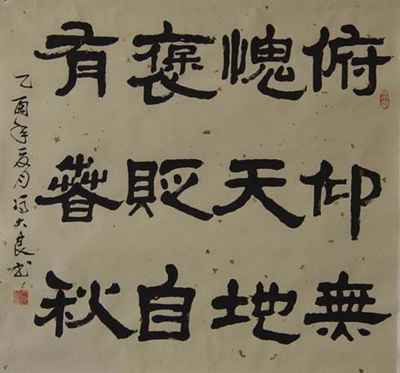 俯仰無
愧天地
褒貶自
有春秋
乙酉年夏月冯大良书